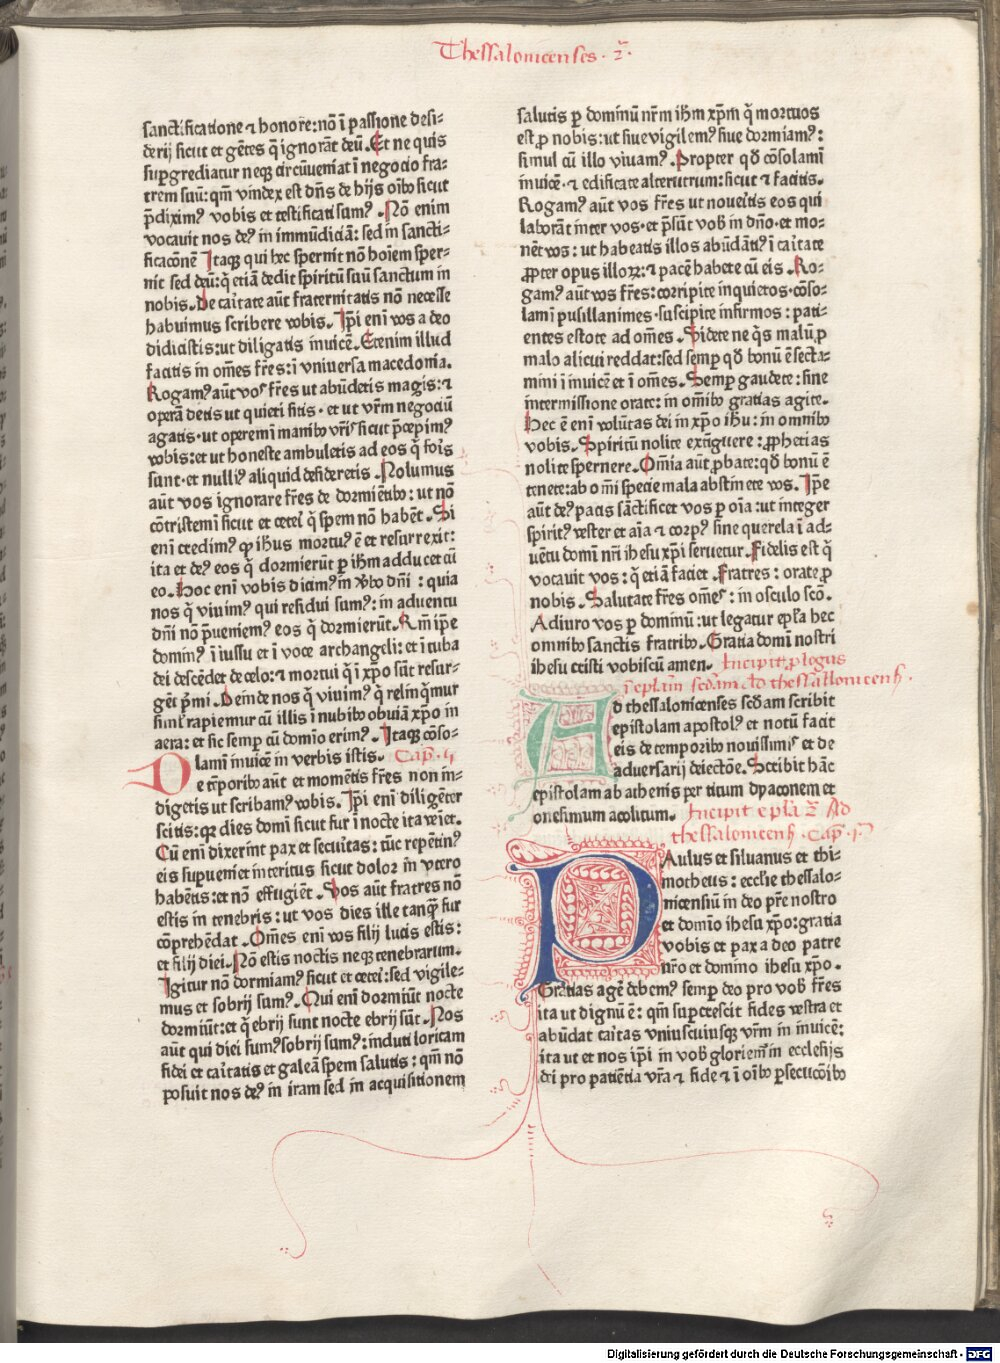 Thessalonicenses · 2̄ ·
sanctificatione ⁊ honore: nō ī passione desi⸗
derij sicut et gētes q̄ ignorāt deū. Et ne quis
supgrediatur neqꝫ circūueniat ī negocio fra⸗
trem suū: qm̄ vindex est dn̄s de hijs oībꝰ sicut
p̄diximꝰ vobis et testificati sumꝰ. Nō enim
vocauit nos deꝰ in immūdiciā: sed in sancti⸗
ficacōnē Itaqꝫ qui hec spernit nō hoīem sper⸗
nit sed deū: q̄ etiā dedit spiritū suū sanctum in
nobis. De caītate aūt fraternitatis nō necesse
habuimus scribere vobis. Ip̄i enī vos a deo
didicistis: ut diligatis inuicē. Etenim illud
facitis in om̄es fr̄es: ī vniuersa macedonia.
Rogamꝰ aūt vos fr̄es ut abūdetis magis: ⁊
operā detis ut quieti sitis · et ut vr̄m negociū
agatis · ut operemī manibꝰ vr̄is sicut p̄cepimꝰ
vobis: et ut honeste ambuletis ad eos q̄ foīs
sunt · et nulliꝰ aliquid desideretis. Nolumus
aūt vos ignorare fr̄es de dormiētibꝰ: ut nō
cōtristemī sicut et ceteī q̄ spem nō habēt. Si
enī credimꝰ ꝙ ihūs mortuꝰ ē et resurrexit:
ita et deꝰ eos q̄ dormierūt ꝑ ihm̄ adducet cū
eo. Hoc enī vobis dicimꝰ in v̄bo dn̄i : quia
nos q̄ viuimꝰ qui residui sumꝰ: in aduentu
dn̄i nō p̄ueniemꝰ eos q̄ dormierūt. Qm̄ ip̄e
dominꝰ ī iussu et ī voce archangeli: et ī tuba
dei descēdet de celo: ⁊ mortui q̄ ī xp̄o sūt resur⸗
gēt p̄mi. Deinde nos q̄ viuimꝰ q̄ relinq̄mur
simul rapiemur cū illis ī nubibꝰ obuiā xp̄o in
aera: et sic semꝑ cū domīo erimꝰ. Itaqꝫ cōso⸗
lamī inuicē in verbis istis. Cap. v
De tꝑoribꝰ aūt et momētis fr̄es non in⸗
digetis ut scribamꝰ vobis. Ip̄i enī diligēter
scitis: qꝫ dies domī sicut fur ī nocte ita veīet.
Cū enī dixerīnt pax et secuītas: tūc repētinꝰ
eis supueniet interitus sicut dolor in vtero
habētis: et nō effugiēt. Vos aūt fratres nō
estis in tenebris: ut vos dies ille tanqꝫ fur
cōprehēdat. Om̄es enī vos filij lucis estis:
et filij diei. Nō estis noctis neqꝫ tenebrarum.
Igitur nō dormiamꝰ sicut et ceteī: sed vigile⸗
mus et sobrij simꝰ. Qui enī dormiūt nocte
dormiūt: et q̄ ebrij sunt nocte ebrij sūt. Nos
aūt qui diei sumꝰ sobrij simꝰ: induti loricam
fidei et caītatis et galeā spem salutis: qm̄ nō
posuit nos deꝰ in iram sed in acquisitionem
salutis ꝑ dominū nr̄m ihm̄ xp̄m q̄ mortuos
est ꝓ nobis: ut siue vigilemꝰ siue dormiamꝰ:
simul cū illo viuamꝰ. Propter qd̄ cōsolamī
inuicē · ⁊ edificate alterutrum: sicut ⁊ facitis.
Rogamꝰ aūt vos fr̄es ut noueītis eos qui
laborāt inter vos · et p̄sūt vob̄ in dn̄o · et mo⸗
nēt vos: ut habeatis illos abūdātiꝰ ī caītate
ꝓpter opus illoꝝ: ⁊ pacē habete cū eis. Ro⸗
gamꝰ aūt vos fr̄es: corripite inquietos · cōso⸗
lamī pusillanimes · suscipite infirmos: pati⸗
entes estote ad om̄es. Videte ne q̄s malū ꝓ
malo alicui reddat: sed semꝑ qd̄ bonū ē secta⸗
mini ī inuicē et ī om̄es. Semꝑ gaudete: sine
intermissione orate: in om̄ibꝰ gratias agite.
Hec ē enī volūtas dei in xp̄o ihū: in omnibꝰ
vobis. Spiritū nolite extīguere: ꝓphetias
nolite spernere. Om̄ia aūt ꝓbate: qd̄ bonū ē
tenete: ab om̄i specie mala abstinete vos. Ip̄e
aūt deꝰ pacis sāctificet vos ꝑ oīa: ut integer
spiritꝰ vester et aīa ⁊ corpꝰ sine querela ī ad⸗
uētu domī nr̄i ihesu xp̄i seruetur. Fidelis est q̄
vocauit vos: q̄ etiā faciet. Fratres: orate ꝓ
nobis. Salutate fr̄es om̄es: in osculo scō.
Adiuro vos ꝑ dominū: ut legatur ep̄la hec
omnibꝰ sanctis fratribꝰ. Gratia domī nostri
ihesu cristi vobiscū amen. Incipit plogus
ī eplam scdam Ad thessallonicens̄.
Ad thessalonicenses scd̄am scribit
epistolam apostolꝰ et notū facit
eis de temporibꝰ nouissimis et de
aduersarij deiectōe. Scribit hāc
epistolam ab athenis per titum dyaconem et
onesimum acolitum. Incipit epla 2̄ Ad
thessalonicens̄ · Cap. ī
Paulus et siluanus et thi⸗
motheus: eccl̄ie thessalo⸗
nicensiū in deo pr̄e nostro
et domīo ihesu xp̄o: gratia
vobis et pax a deo patre
nr̄o et domino ihesu xp̄o.
Gratias agē debemꝰ semꝑ deo pro vob̄ fr̄es
ita ut dignū ē: qm̄ suꝑcrescit fides vestra et
abūdat caītas vniuscuiusqꝫ vr̄m in inuicē:
ita ut et nos ip̄i in vob̄ gloriemꝰ in ecclesijs
dei pro patiētia vr̄a ⁊ fide ⁊ ī oībꝰ ꝑsecucōibꝰ
Digitalisierung gefördert durch die Deutsche Forschungsgemeinschaft - DFG